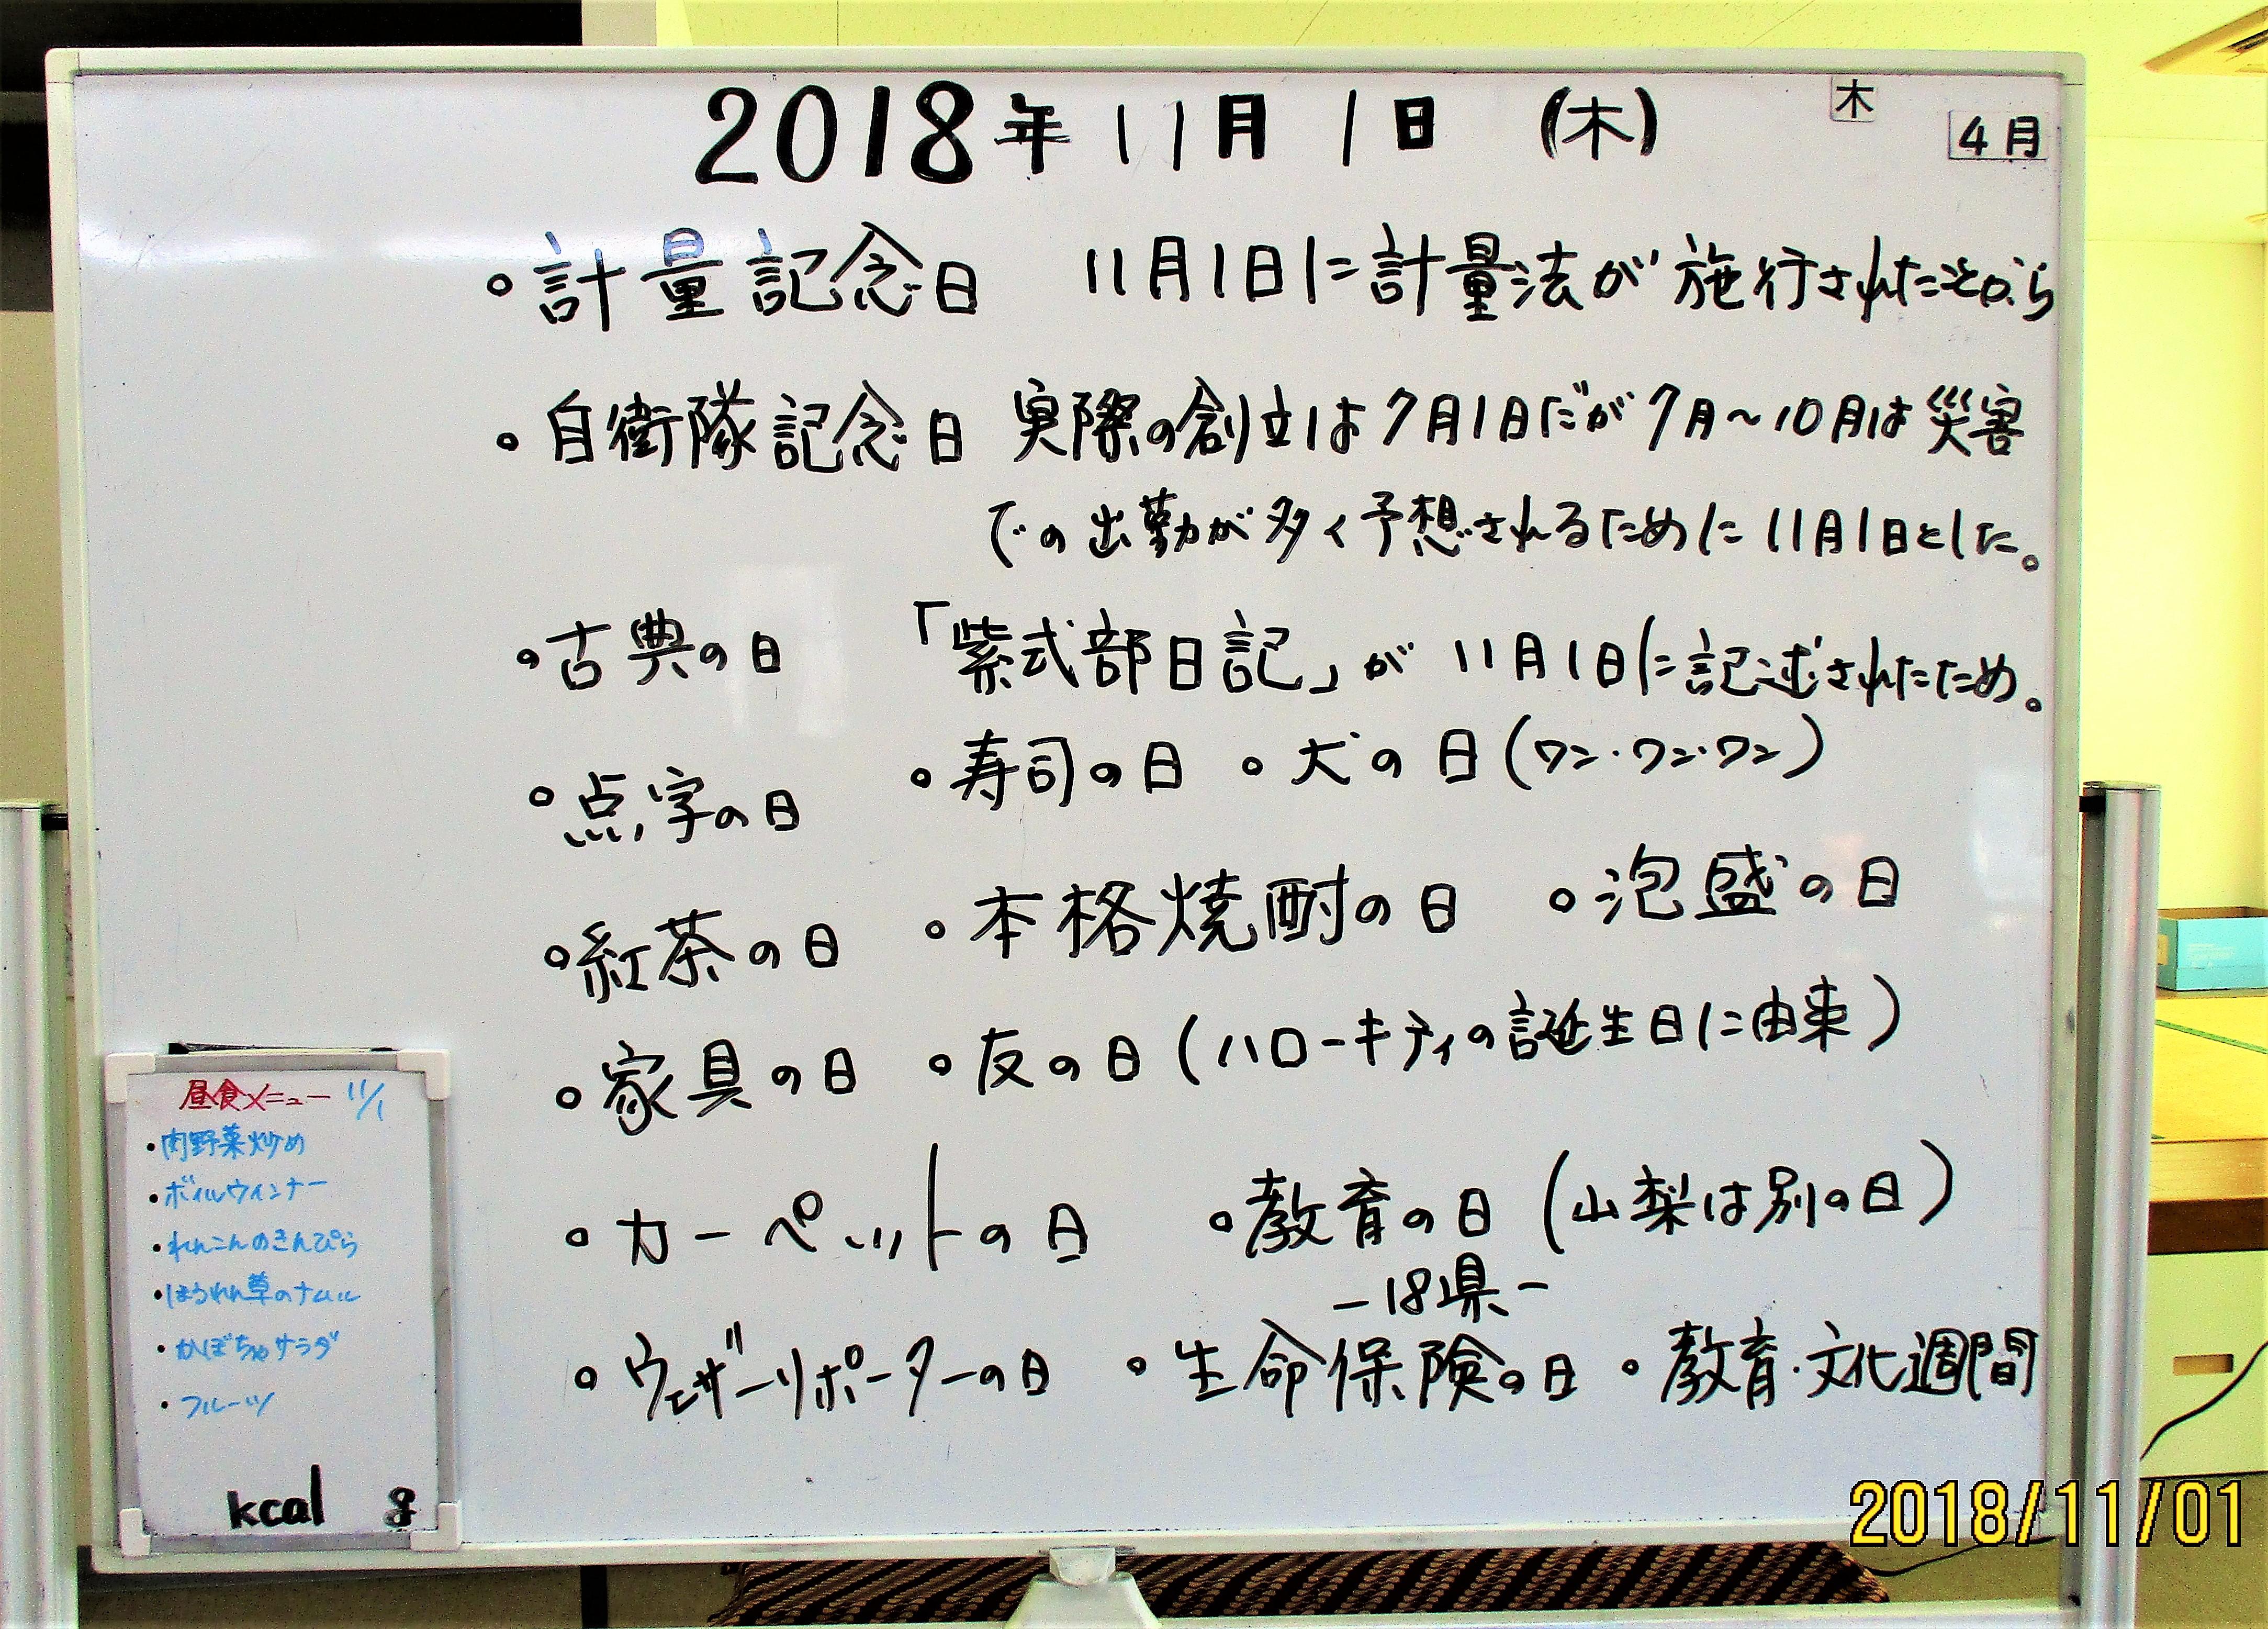 2018年 11月 1日 (木)
木
4月
。計量記念日 11月1日に計量法が施行されたことから
。自衛隊記念日 実際の創立は7月1日だが7月～10月は災害
での出勤が多く予想されるために11月1日とした。
。古典の日 「紫式部日記」が 11月1日に記述されたため。
。点字の日 。寿司の日 。犬の日(ワン・ワン・ワン)
。紅茶の日 。本格焼酎の日 。泡盛の日
。家具の日 。友の日(ハローキティの誕生日に由来)
。カーペットの日 。教育の日(山梨は別の日)
－18県－
。ウェザーリポーターの日 。生命保険の日 。教育・文化週間
昼食メニュー 11/1
・肉野菜炒め
・ボイルウィンナー
・れんこんのきんぴら
・ほうれん草のナムル
・かぼちゃサラダ
・フルーツ
kcal g
2018/11/01